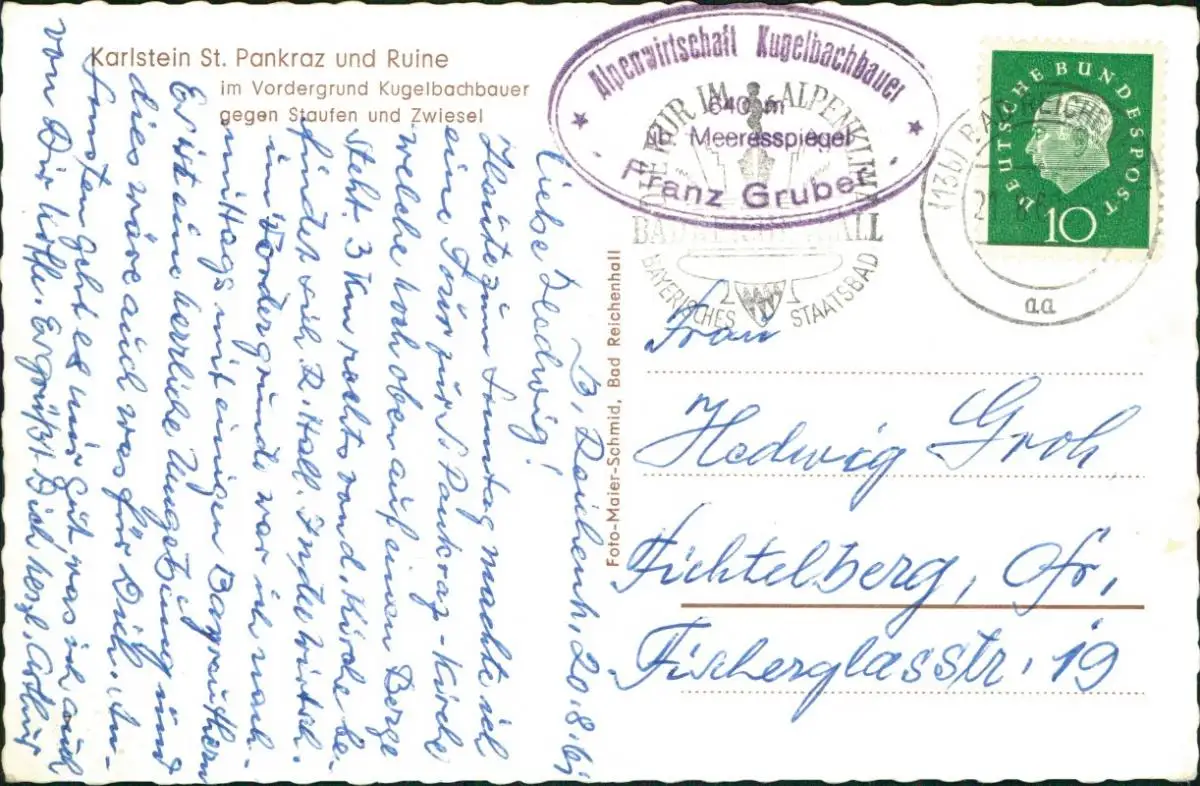 Karlstein St. Pankraz und Ruine
im Vordergrund Kugelbachbauer
gegen Staufen und Zwiesel
Alpenwirtschaft Kugelbachbauer
640 m
üb. Meeresspiegel
Franz Gruber
KUR IM ALPENKLIMA
BAD REICHENHALL
BAYERISCHES STAATSBAD
(13b) BAD REICHENHALL
aa
DEUTSCHE BUNDESPOST
10
Foto-Maier-Schmid, Bad Reichenhall
B, Reichenh, 20.8.61
Liebe Hedwig!
Heute zum Sonntag machte ich
eine Tour zur St. Pankraz-Kirche
welche hoch oben auf einem Berge
steht. 3 Km rechts von d. Kirche be-
findet sich R. Hall. In der Wirtsch.
im Vordergrunde war ich nach-
mittags mit einigen Bayreuthern
Es ist eine herrliche Umgebung und
dies wäre auch was für Dich. An-
sonsten geht es mir gut was ich auch
von Dir hoffe. Es grüßt Dich herzl. Arthur
Frau
Hedwig Groh
Fichtelberg, Ofr,
Fischerglasstr. 19